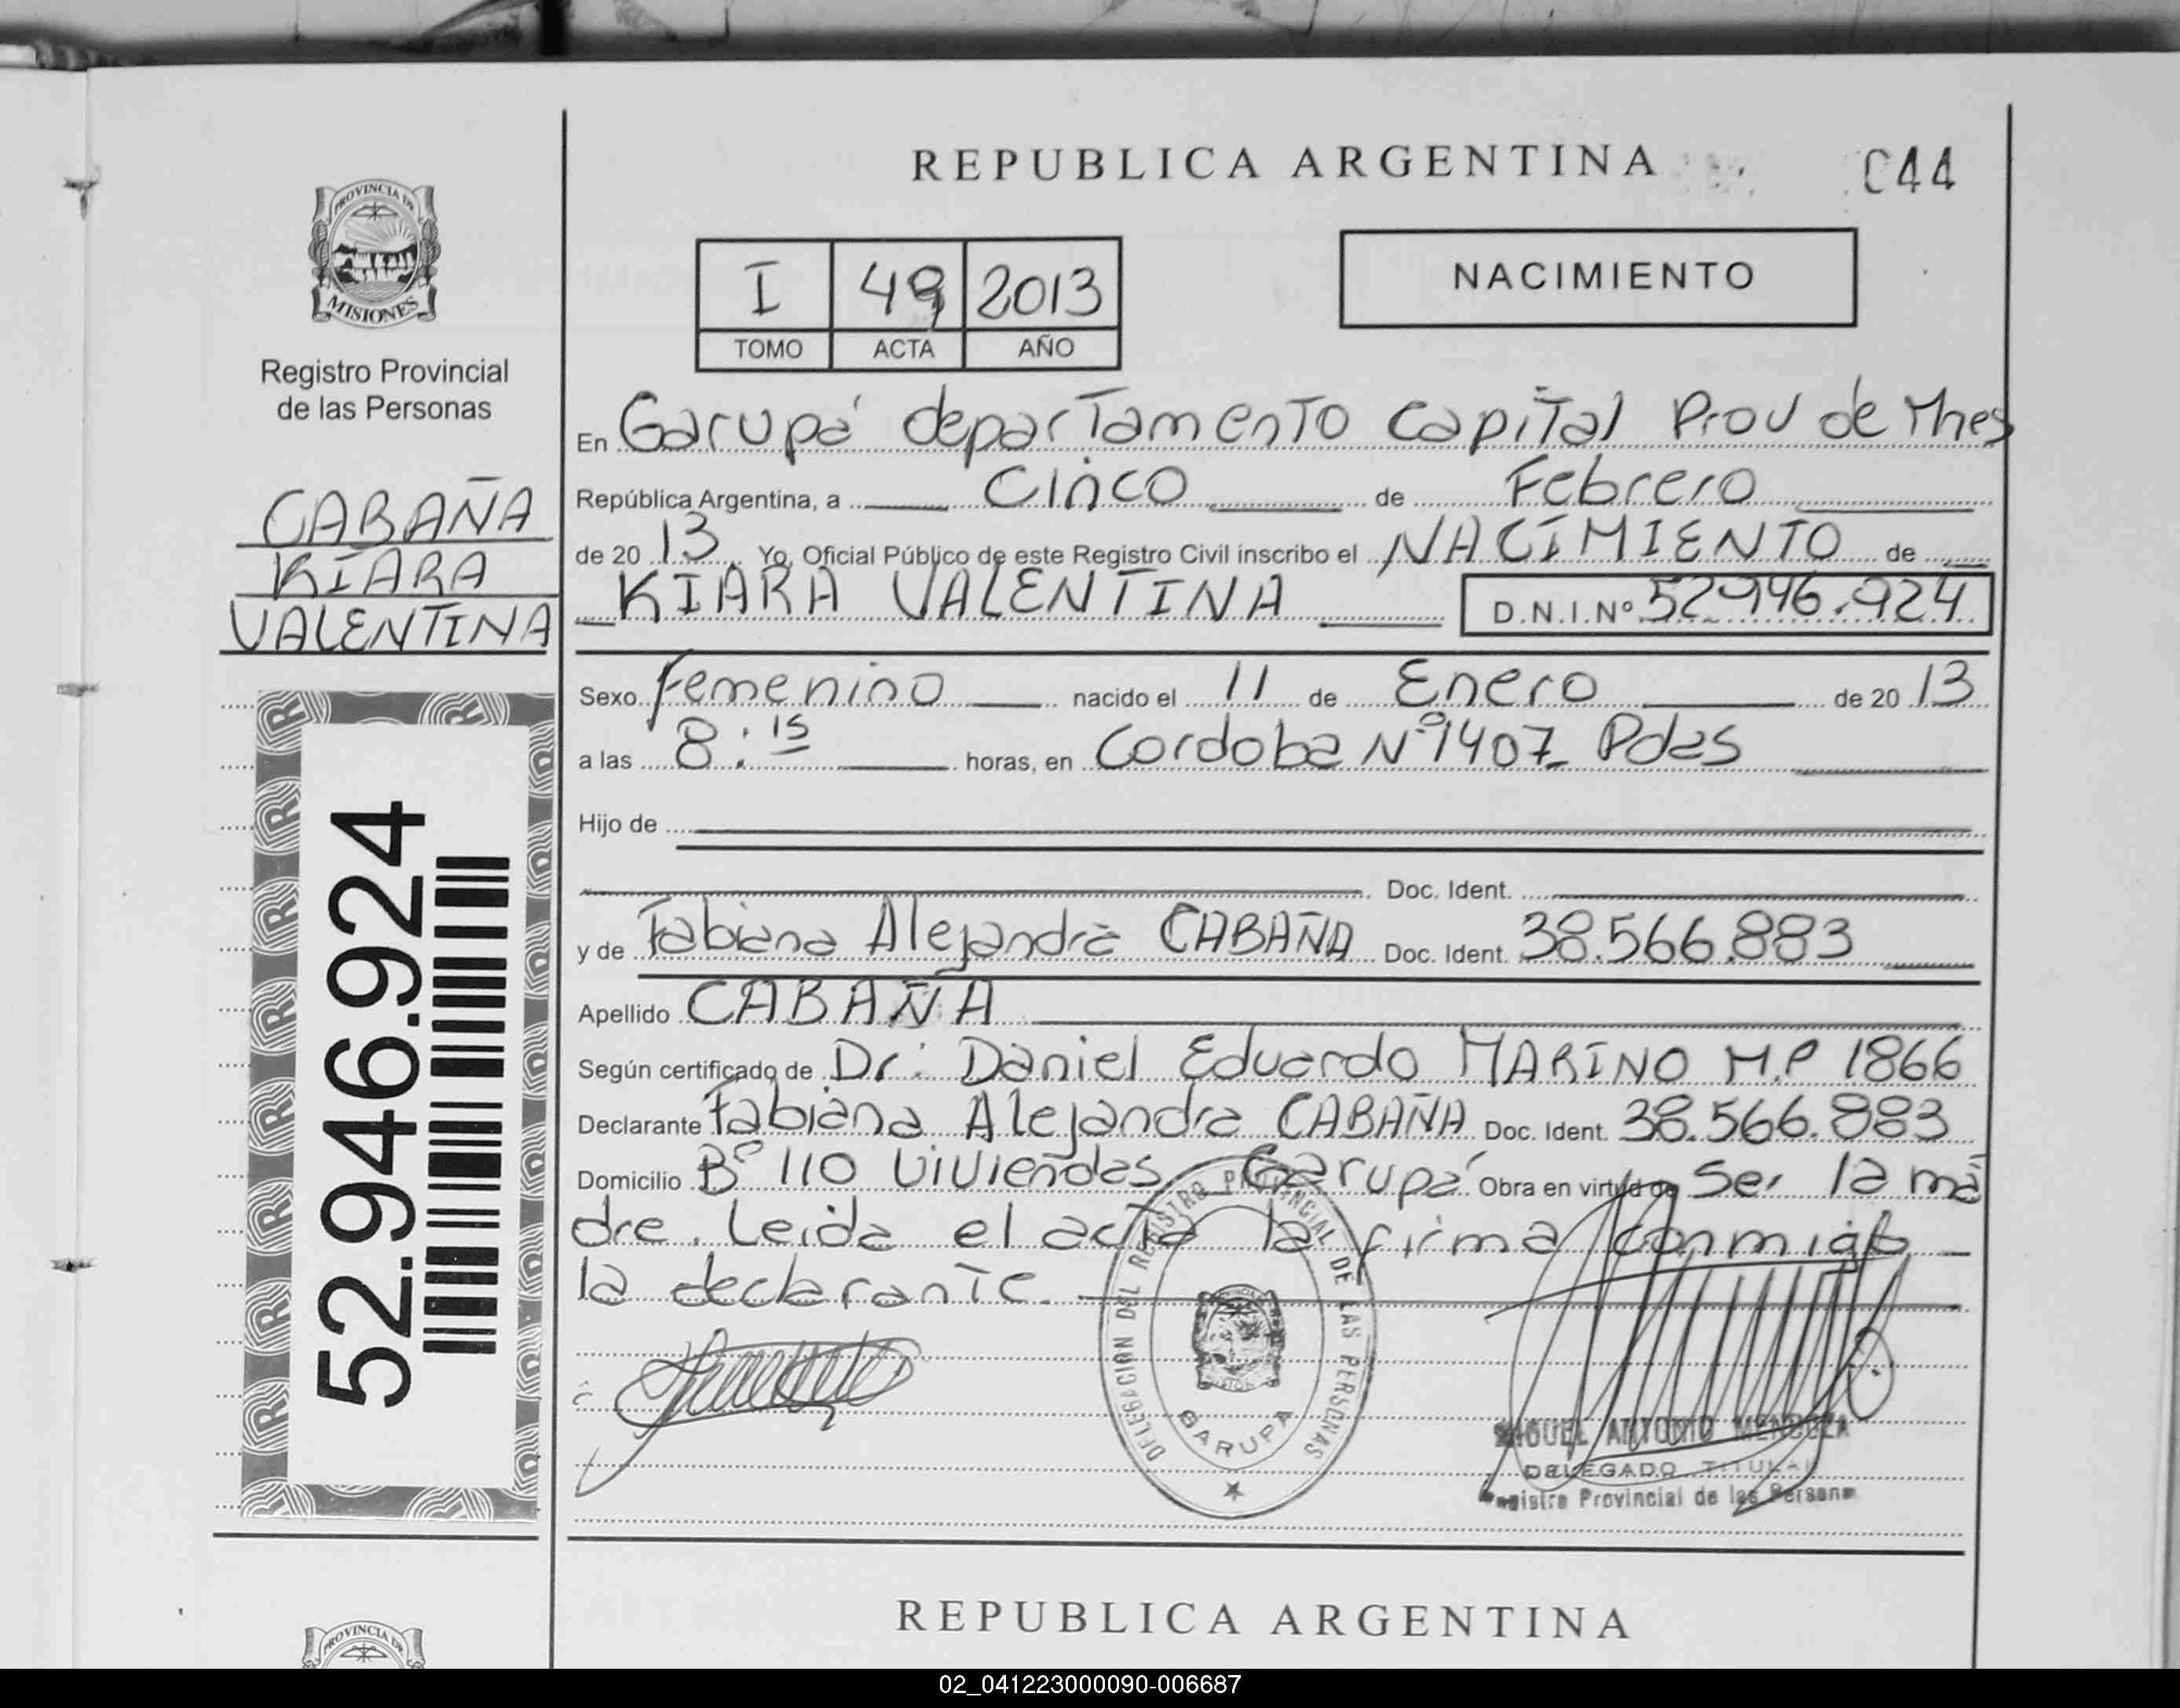 REPUBLICA ARGENTINA
044
PROVINCIA DE
MISIONES
Registro Provincial
de las Personas
CABAÑA
KIARA
VALENTINA
52.946.924
I 49 2013
TOMO ACTA AÑO
NACIMIENTO
En Garupá departamento Capital Prov de Mnes
República Argentina, a Cinco de Febrero
de 20 13 Yo, Oficial Público de este Registro Civil inscribo el NACIMIENTO de
KIARA VALENTINA D.N.I.Nº 52946.924
Sexo femenino nacido el 11 de Enero de 20 13
a las 8:15 horas, en Cordoba Nº 1407 Pdas
Hijo de
Doc. Ident.
y de Fabiana Alejandra CABAÑA Doc. Ident. 38.566.883
Apellido CABAÑA
Según certificado de Dr: Daniel Eduardo MARINO M.P 1866
Declarante Fabiana Alejandra CABAÑA Doc. Ident. 38.566.883
Domicilio Bº 110 Viviendas Garupá Obra en virtud de Ser la ma
dre. Leida el acta la firma conmigo
la declarante.
DELEGACION DEL REGISTRO PROVINCIAL DE LAS PERSONAS
GARUPA
MIGUEL ANTONIO MENDOZA
DELEGADO TITULAR
Registro Provincial de las Personas
REPUBLICA ARGENTINA
PROVINCIA DE
02_041223000090-006687